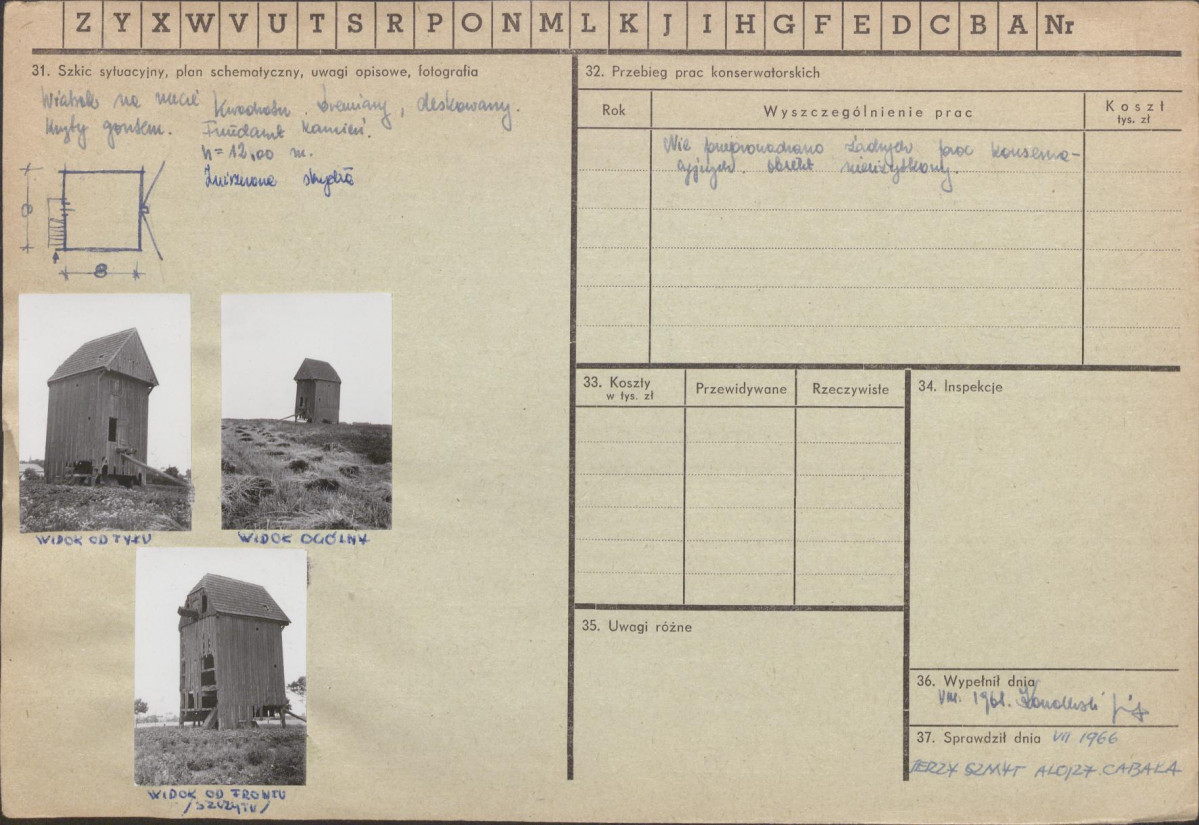 Z Y X W V U T S R P O N M L K J I H G F E D C B A Nr
31. Szkic sytuacyjny, plan schematyczny, uwagi opisowe, fotografia
Wiatrak na rzucie Kwadratu. Drewniany, deskowany.
Kryty gontem. Fundament kamień.
h = 12,00 m.
Zniszczone skrzydła
8
8
WIDOK OD TYŁU
WIDOK OGÓLNY
WIDOK OD FRONTU
/SZCZYTU/
32. Przebieg prac konserwatorskich
Rok
Wyszczególnienie prac
Koszt
tys. zł
Nie przeprowadzano żadnych prac konserwa-
cyjnych. obiekt nieużytkowy.
33. Koszty
w tys. zł
Przewidywane
Rzeczywiste
34. Inspekcje
35. Uwagi różne
36. Wypełnił dnia
VIII. 1961.
37. Sprawdził dnia VII 1966
JERZY SZMYT ALOJZ. CABAŁA